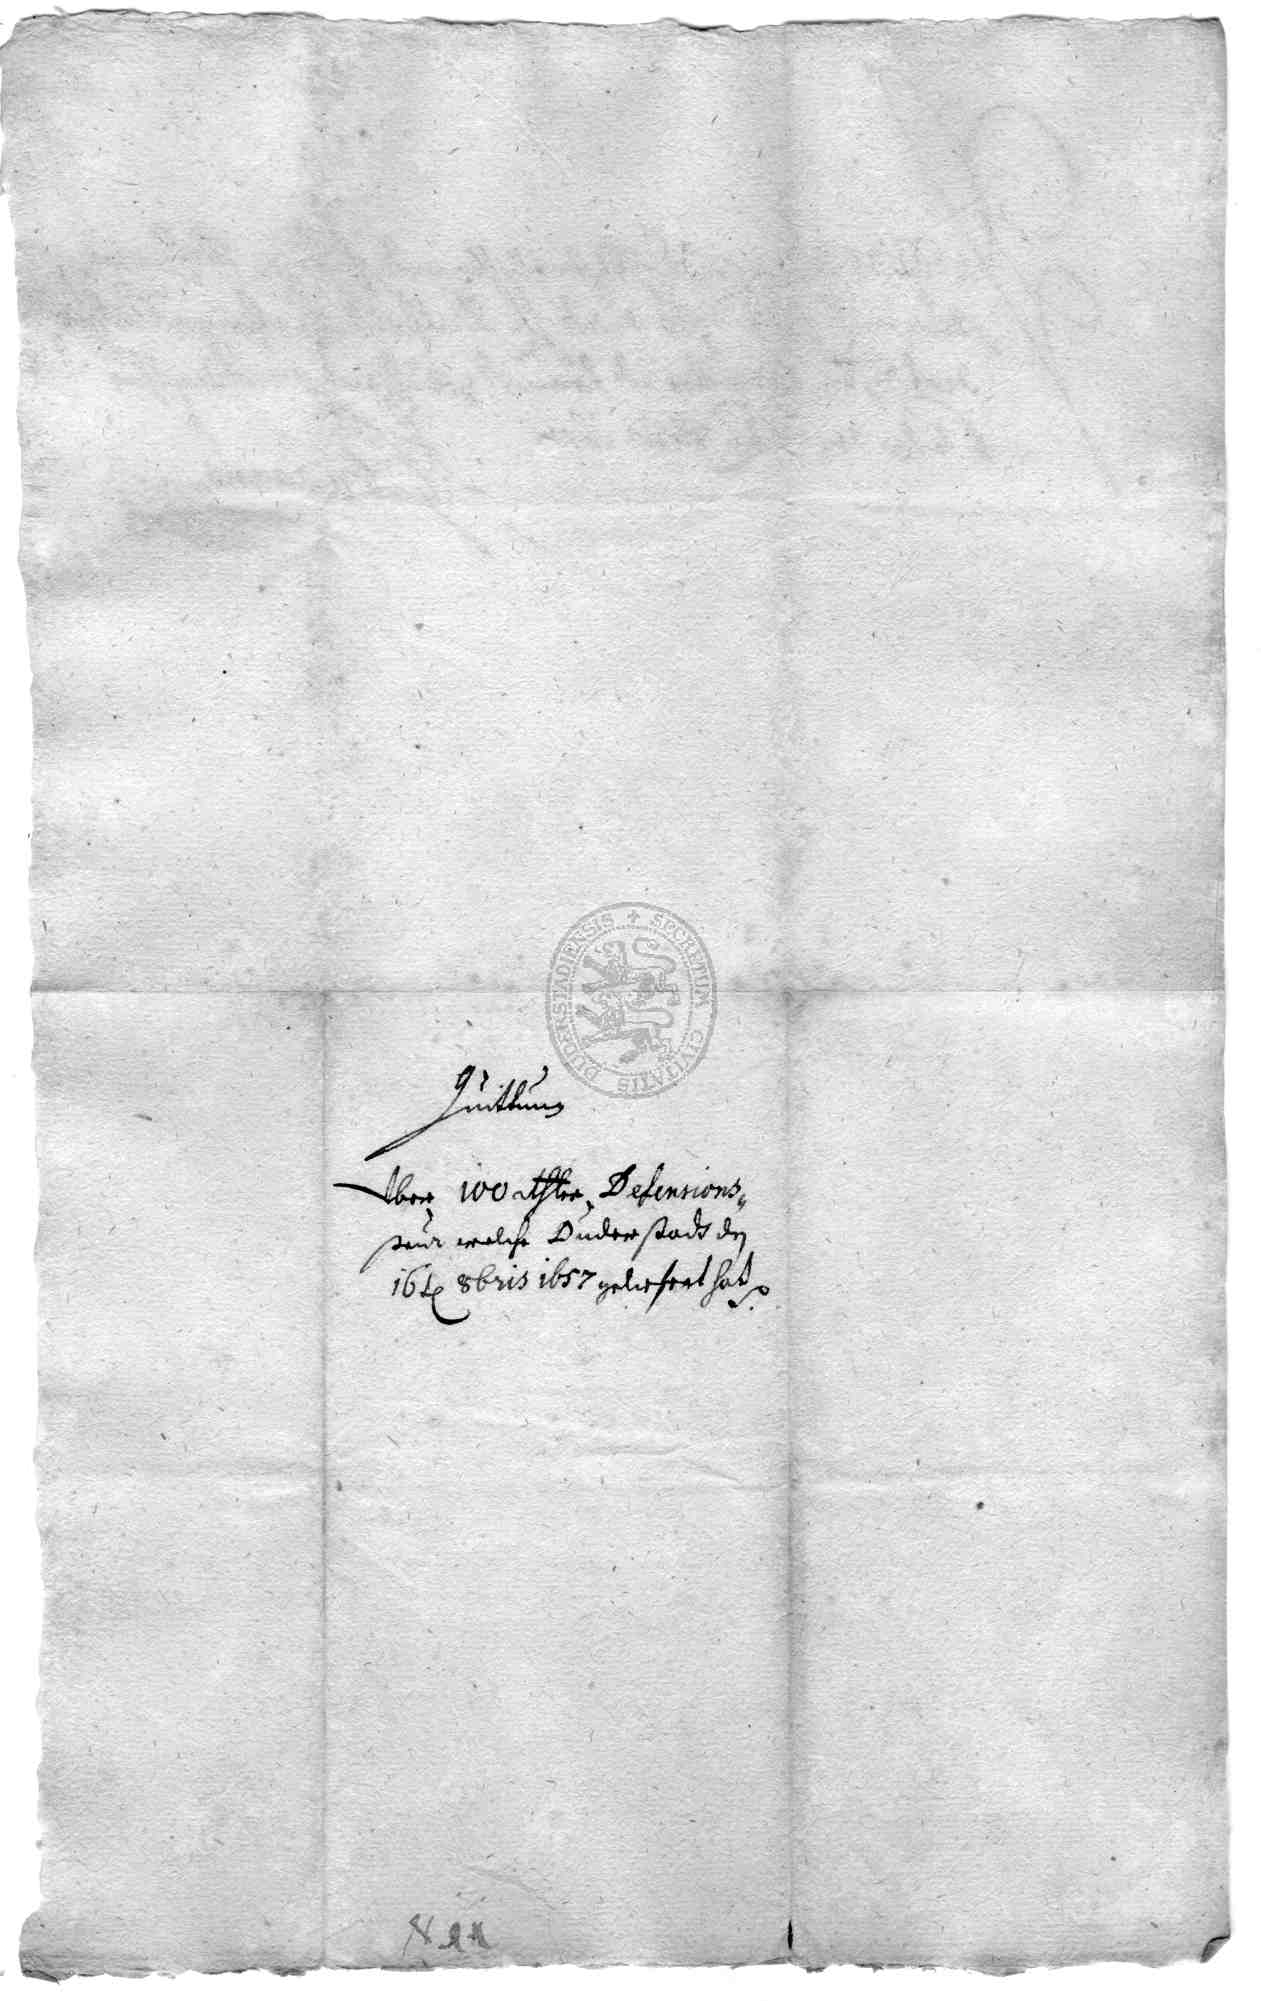 ✝ SECRETUM CIVITATIS DUDERSTADIENSIS
Quittung
Uber 100 rthler Defensions
steur welche Duderstadt den
16t 8bris 1657 geliefert hat